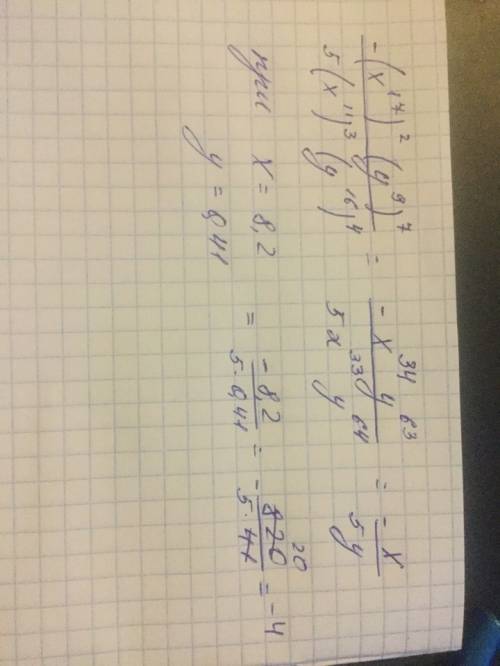 -(x^17)^2 (y^9)^7 / 5(x^11)^3 (y^16)^4 = -x^34 y^63 / 5x^33 y^64 = -x / 5y
при x = 8,2
y = 0,41
= -8,2 / 5·0,41 = -820 / 5·41 = -4
20